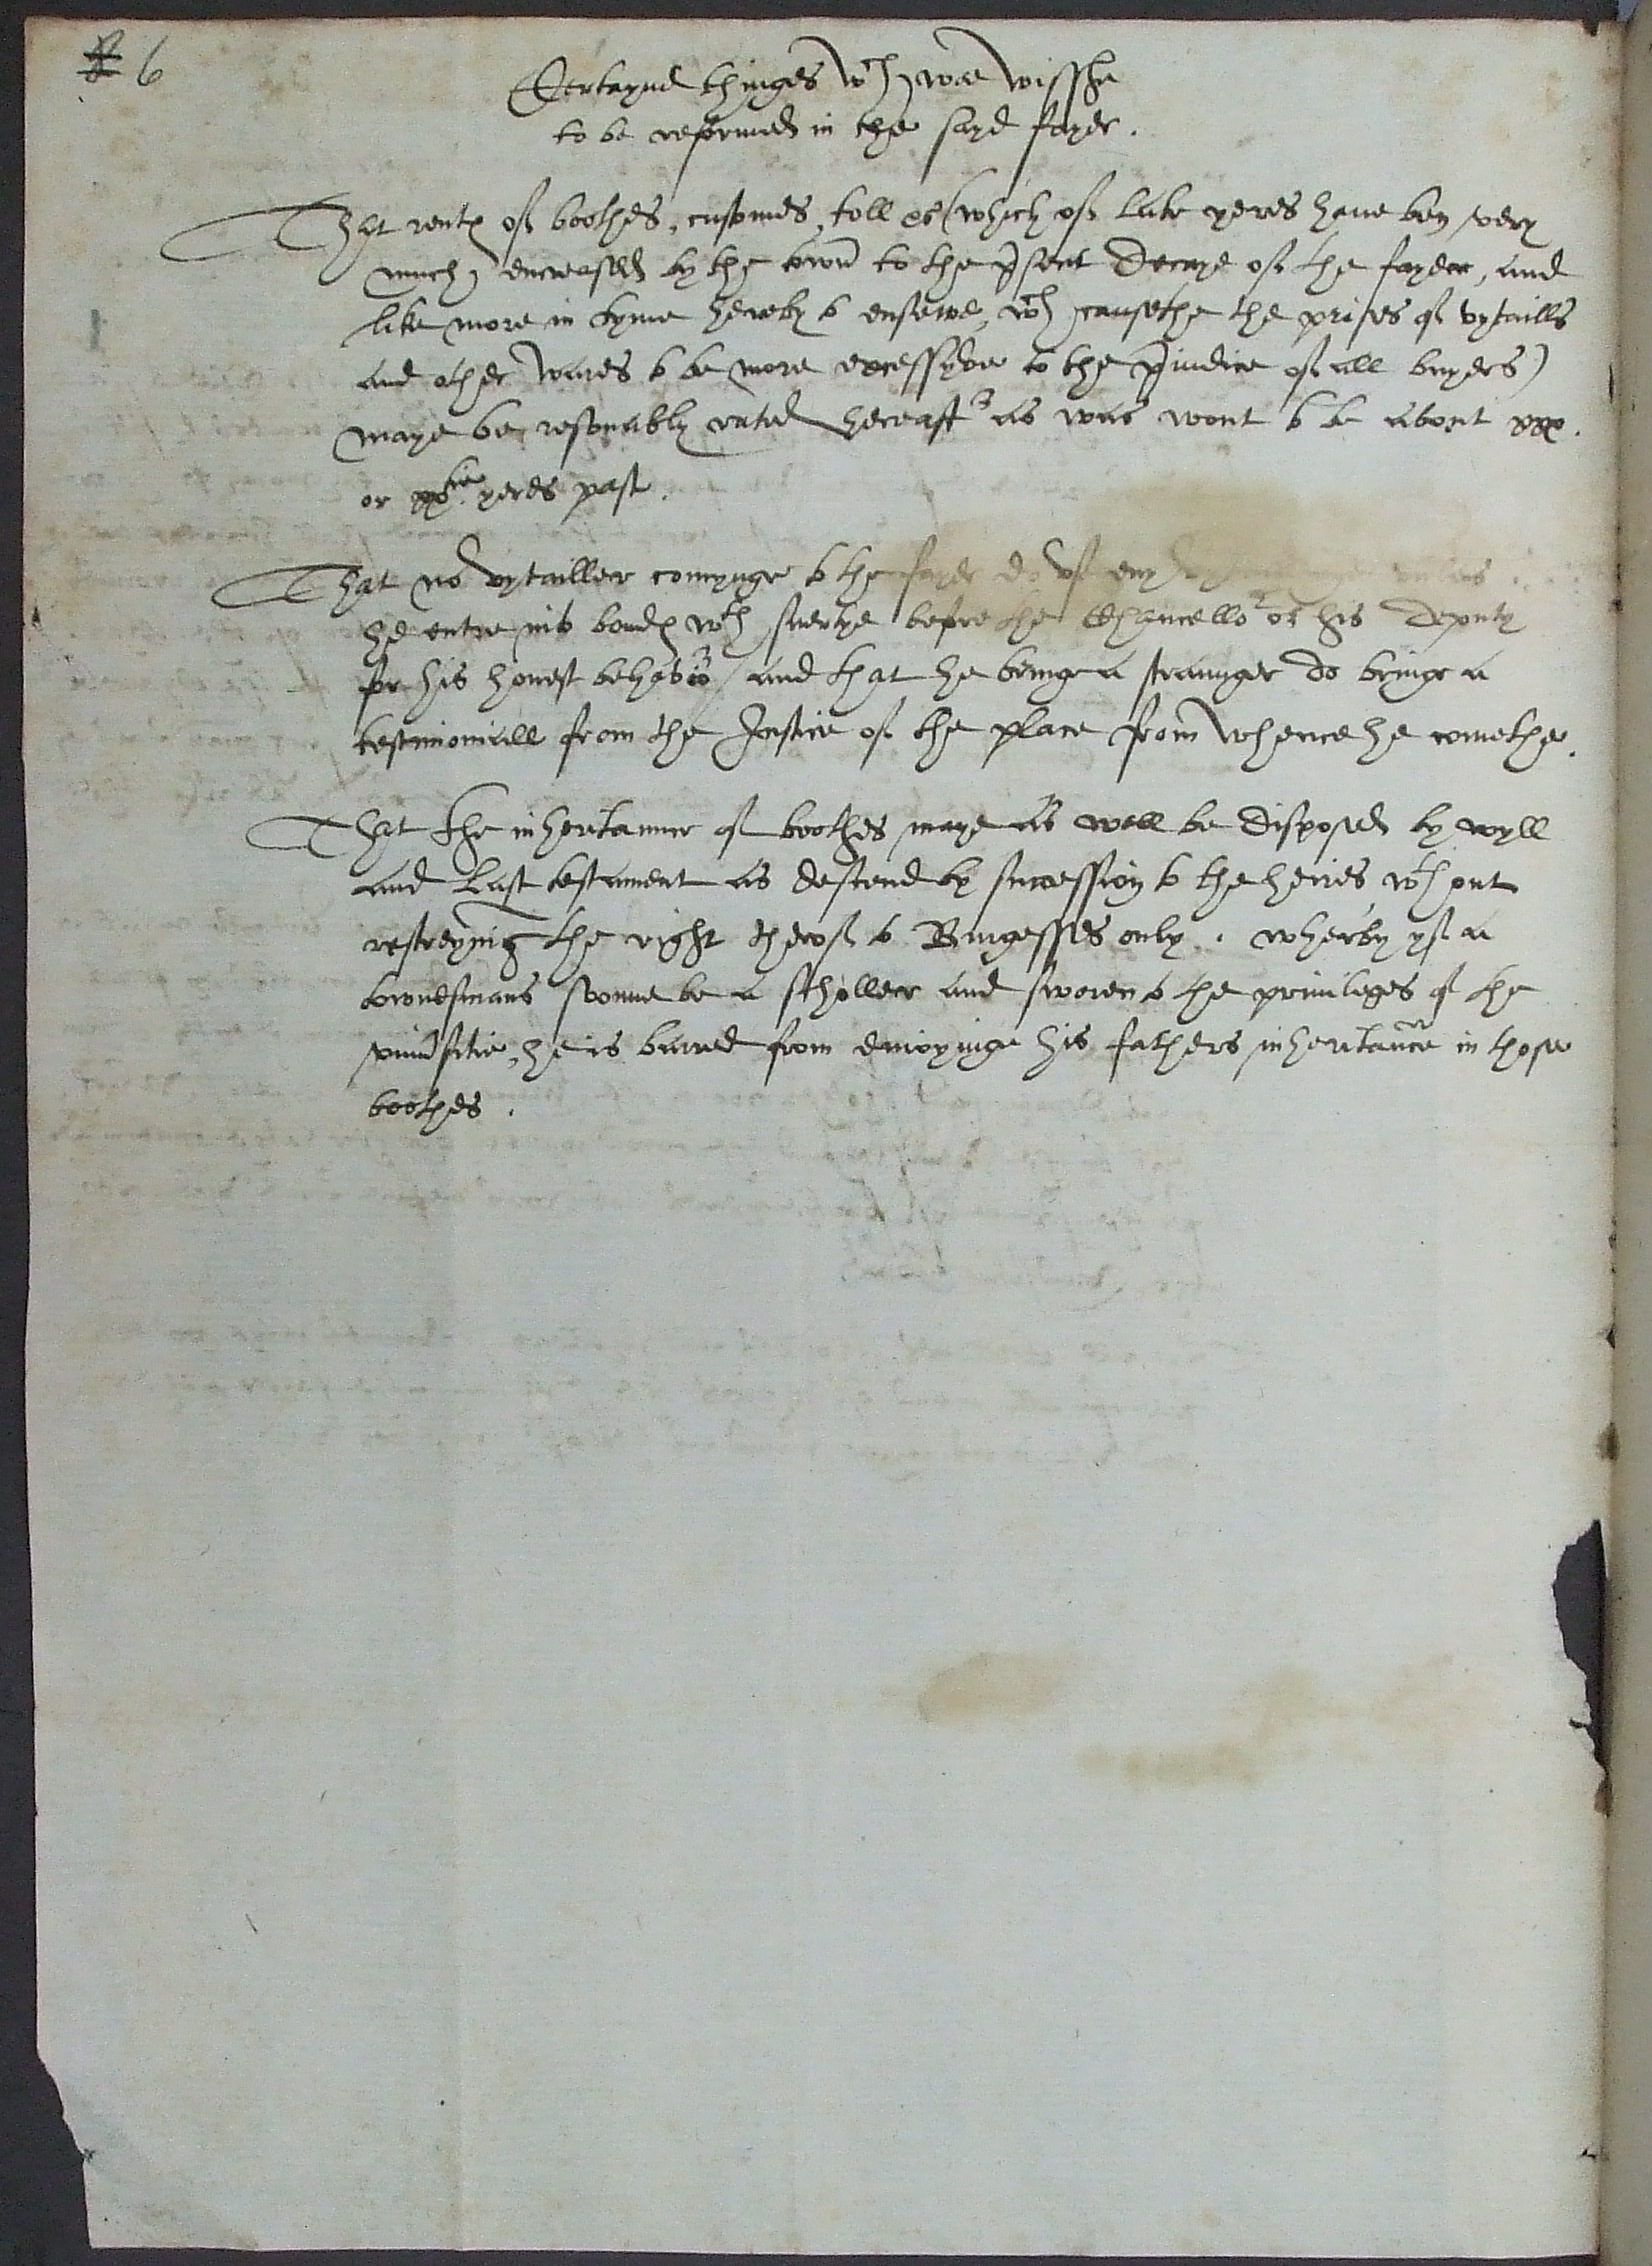 6
Certayne thinges wch we wisshe
to be reformed in the sayd fayer.
That rentes of boothes, customes, toll &c (which of late yeres haue ben very
much encreased by the town to the psent decaye of the fayer, and
like more in tyme hereby to ensewe, wch causethe the prises of vytaills
and other wares to be more excessyve to the piudice of all buyers)
maye be resonably rated hereaftr as was wont to be about xxx.
or xxtie yeres past.
That no vytailler comynge to the fayer do vse eny
he entre into bondes wth suertye before the Chancellor or his deputy
for his honest behavior / and that he beinge a straunger do bringe a
testimoniall from the Justice of the place from whence he comethe.
That the inheritaunce of boothes maye as well be disposed by wyll
and last testament as descend by succession to the heires, wthout
restreyning the right therof to Burgesses only. wherby yf a
townesmans sonne be a scholler and sworen to the priuileges of the
vniusitie, he is barred from enioyinge his fathers inheritance in those
boothes.